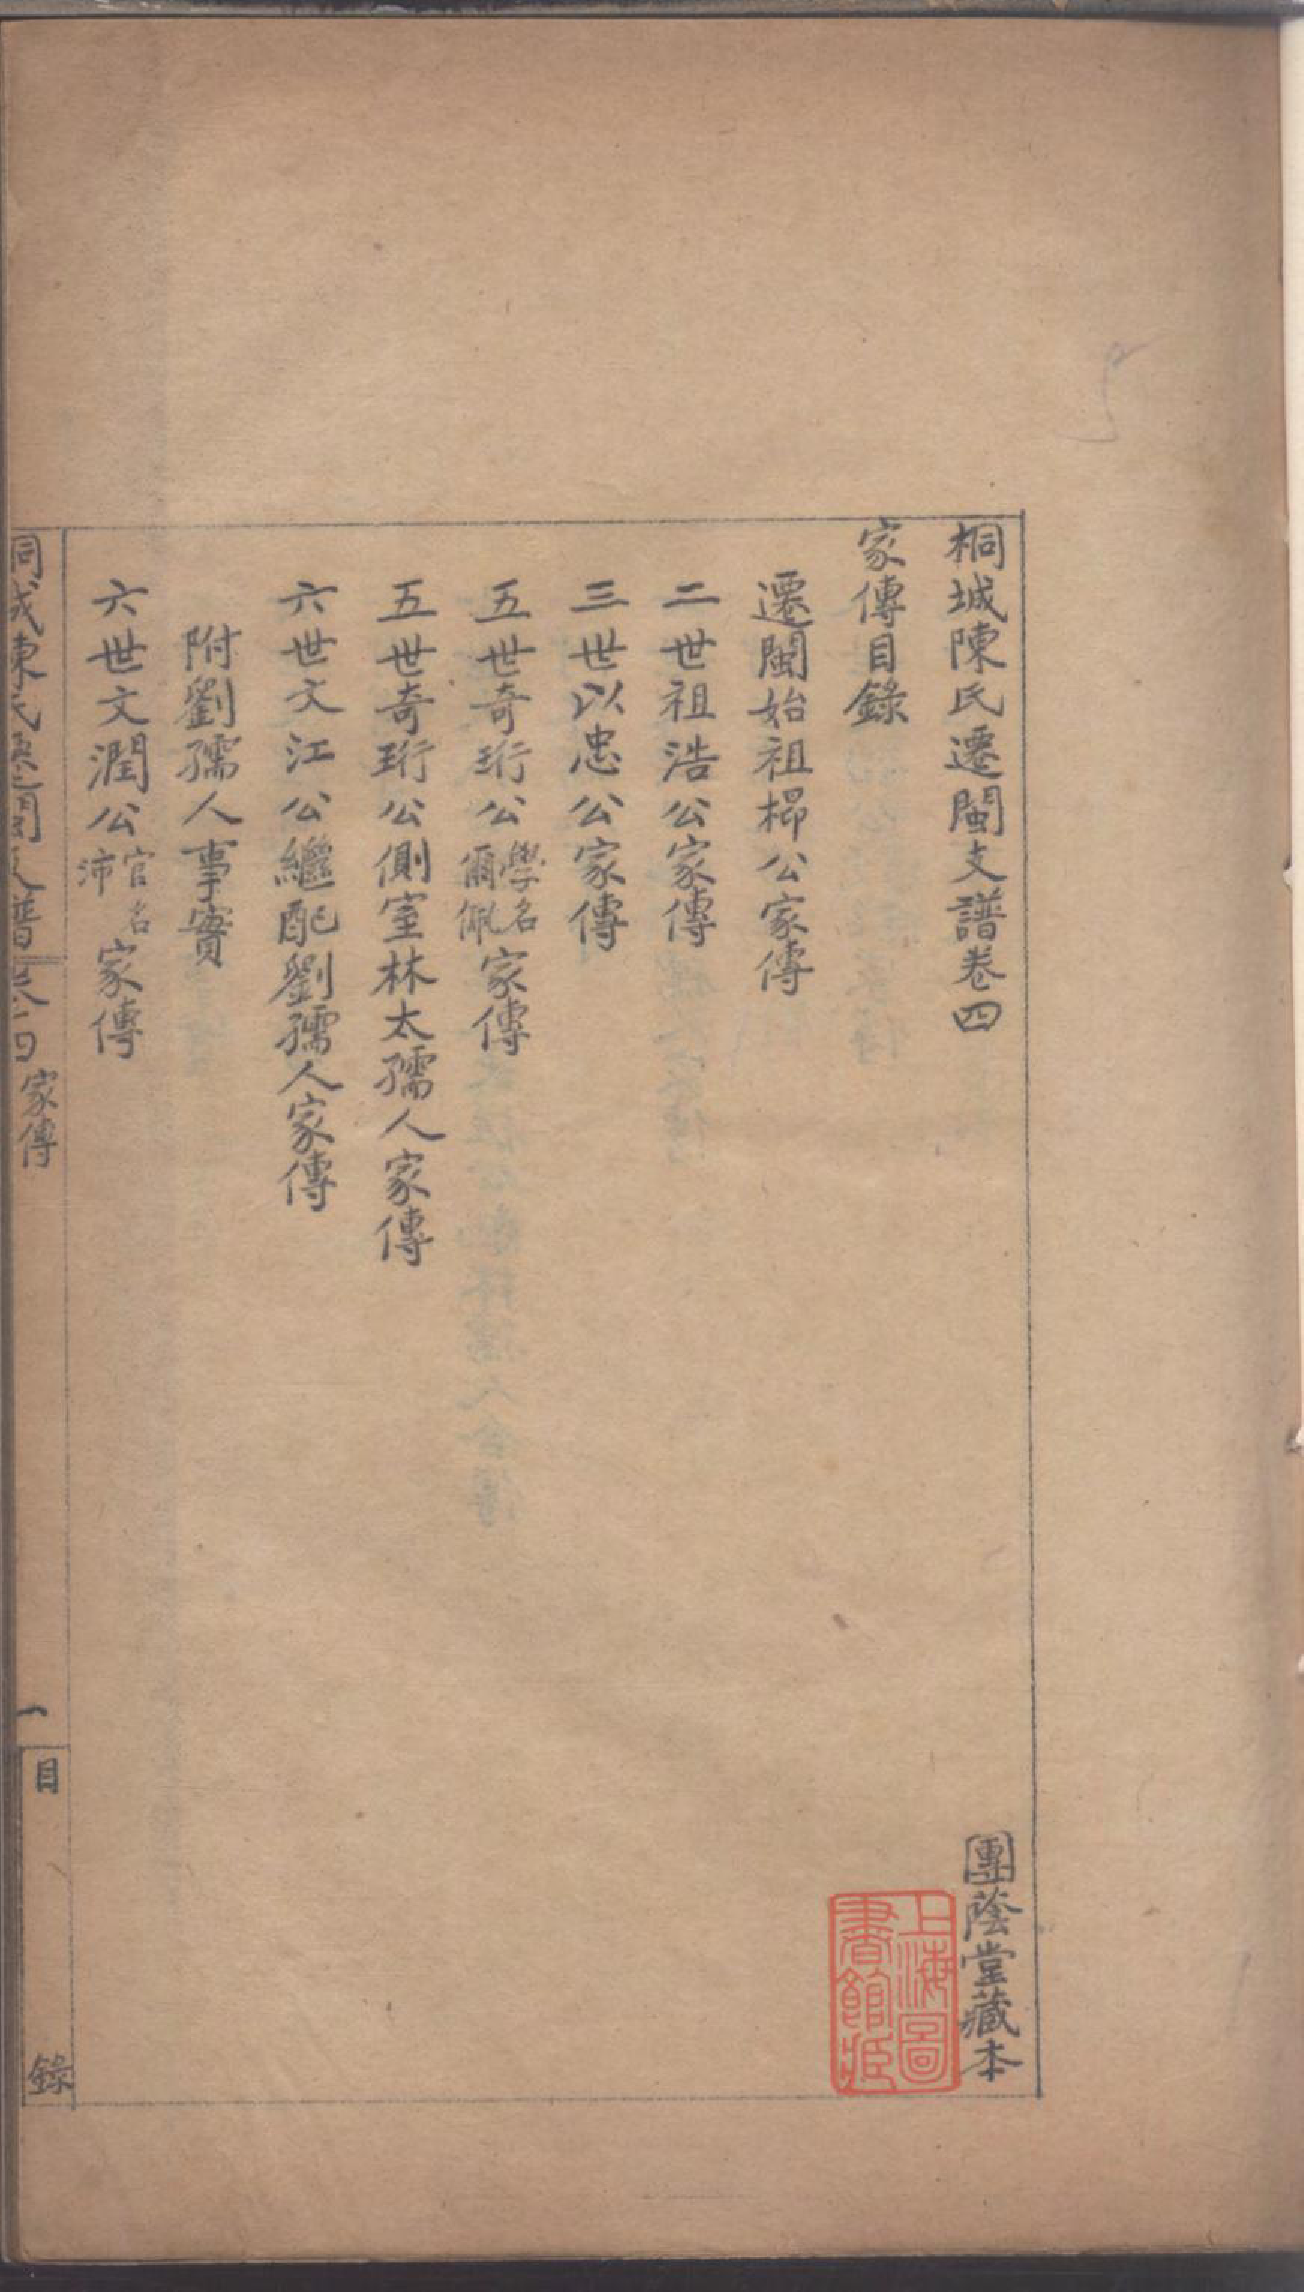 桐城陳氏遷閩支譜卷四
團蔭堂藏本
家傳目錄
遷閩始祖櫛公家傳
二世祖浩公家傳
三世以忠公家傳
五世奇珩公學名爾佩家傳
五世奇珩公側室林太孺人家傳
六世文江公繼配劉孺人家傳
附劉孺人事實
六世文潤公官名沛家傳
桐城陳氏遷閩支譜卷四 家傳
一
目錄
上海圖書館藏